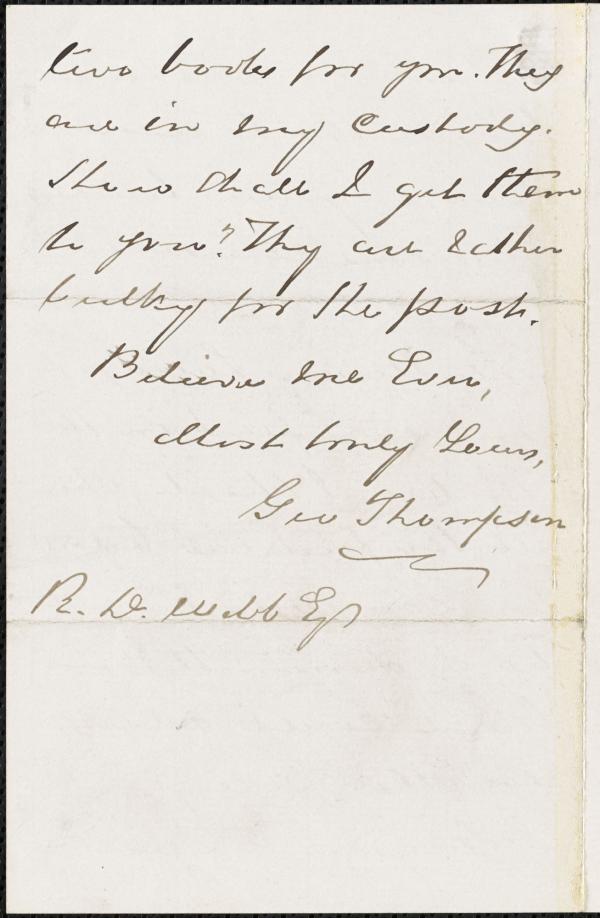 two books for you. They
are in my custody.
How shall I get them
to you? They are rather
bulky for the post.
Believe me Ever,
Most truly Yours,
Geo Thompson
R. D. Webb Esq